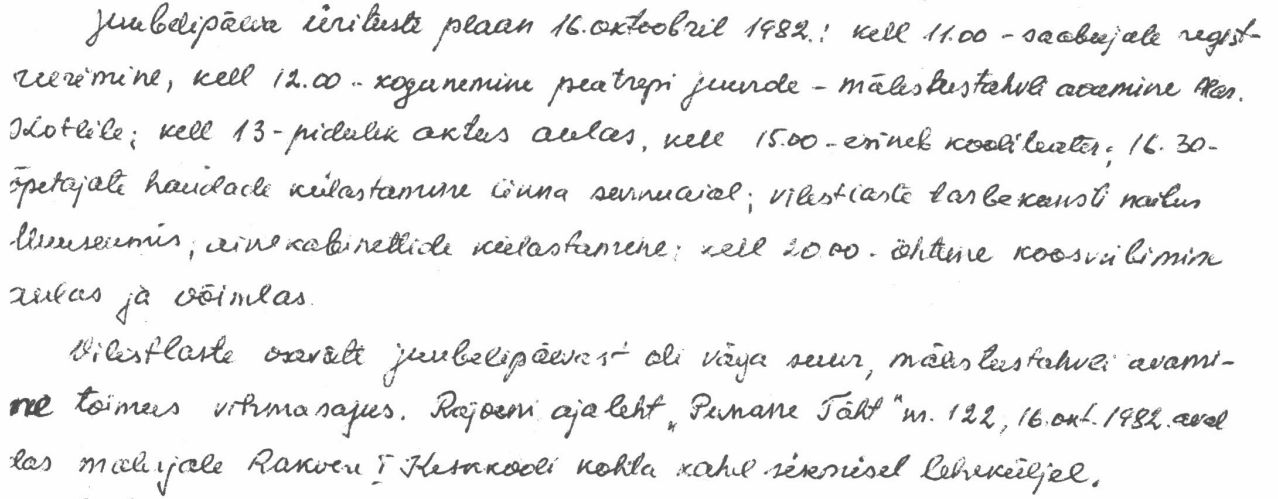 Juubelipäeva ürituste plaan 16. oktoobril 1982.: kell 11.00 - saabujate regist-
reerimine, kell 12.00 - kogunemine peatrepi juurde - mälestustahvli avamine Alar.
Kotlile; kell 13 - pidulik aktus aulas, kell 15.00 - esineb kooliteater; 16.30 -
õpetajate haudade külastamine linna surnuaial; vilistlaste tarbekunsti näitus
Muuseumis; ainekabinettide külastamine; kell 20.00 - õhtune koosviibimine
aulas ja võimlas.
Vilistlaste osavõtt juubelipäevast oli väga suur, mälestustahvli avami-
ne toimus vihmasajus. Rajooni ajaleht „Punane Täht" nr. 122, 16. okt. 1982. aval
das materjale Rakvere I Keskkooli kohta kahel sisemisel leheküljel.